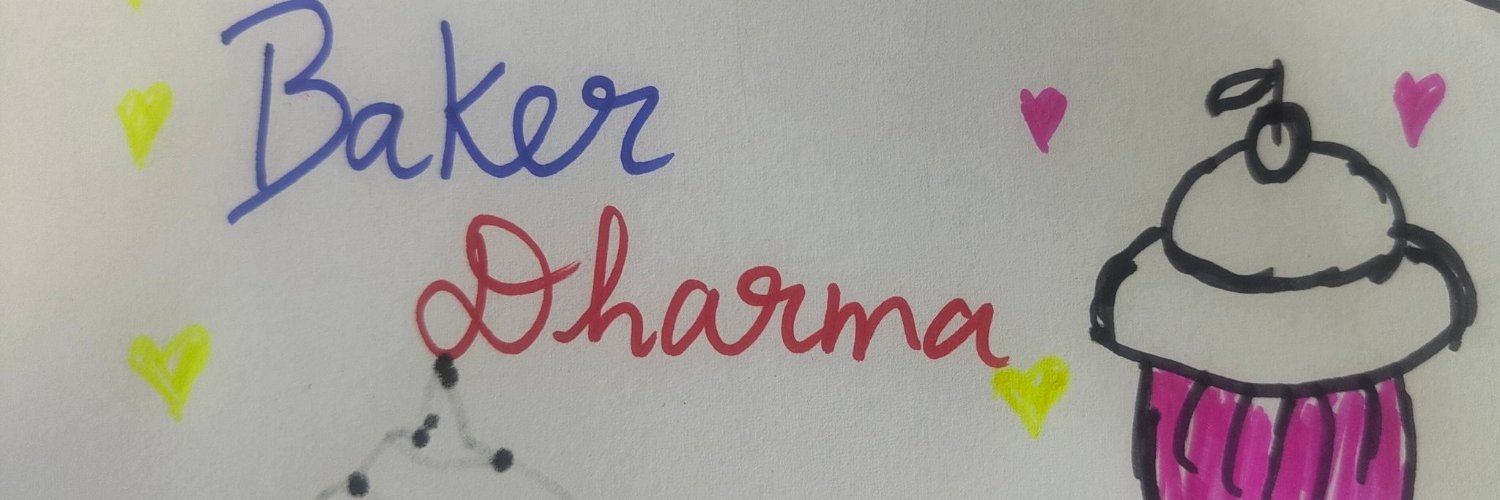 Baker
Dharma